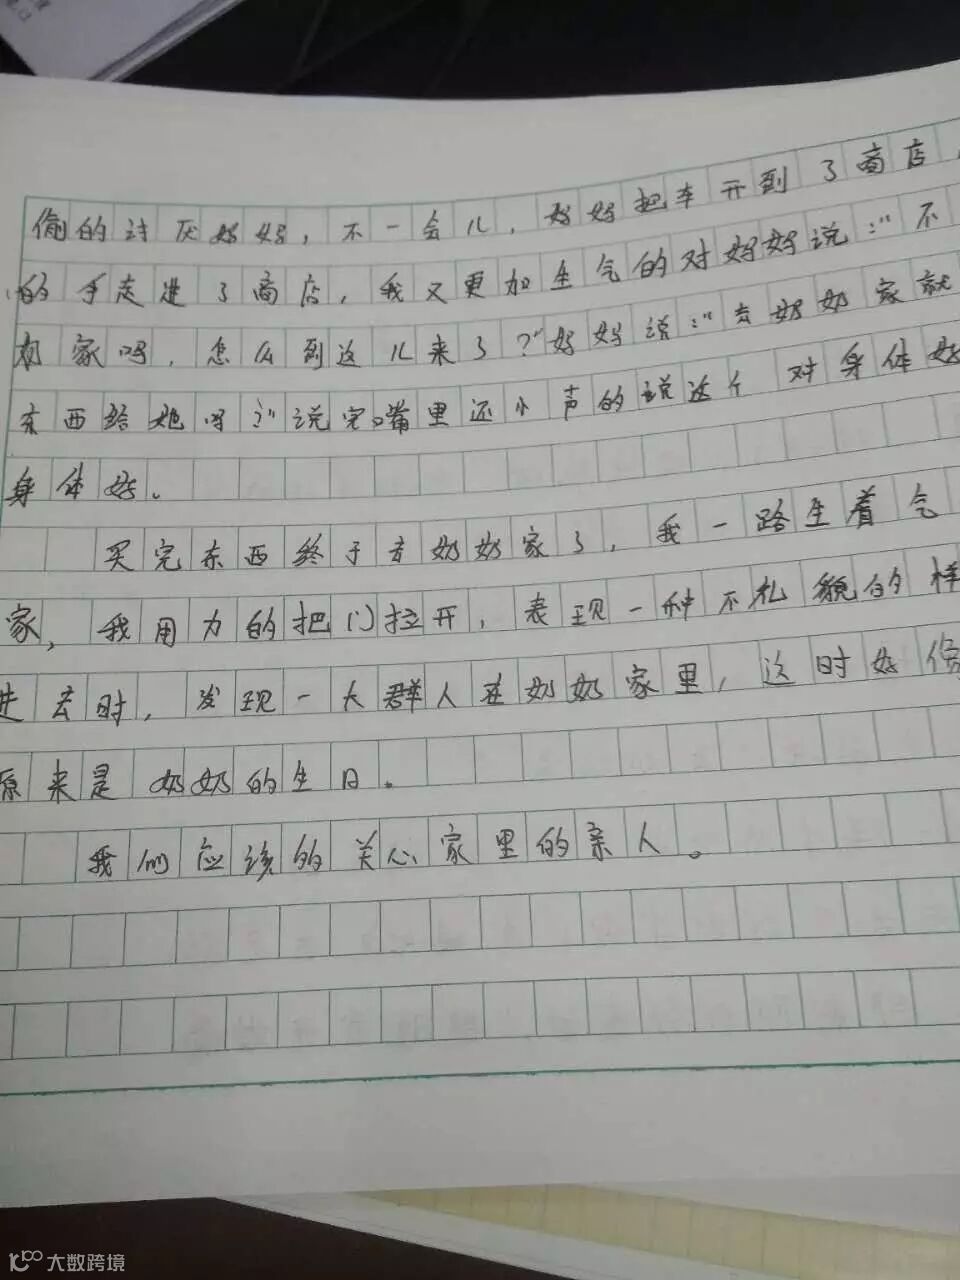 偷的讨厌妈妈，不一会儿，妈妈把车开到了商店，
的手走进了商店，我又更加生气的对妈妈说：“不
奶家吗，怎么到这儿来了？”妈妈说：“去奶奶家就
东西给她吗？”说完嘴里还小声的说这个对身体好
身体好。
买完东西终于去奶奶家了，我一路生着气
家，我用力的把门拉开，表现一种不礼貌的样
进去时，发现一大群人在奶奶家里，这时好像
原来是奶奶的生日。
我们应该的关心家里的亲人。
大数跨境